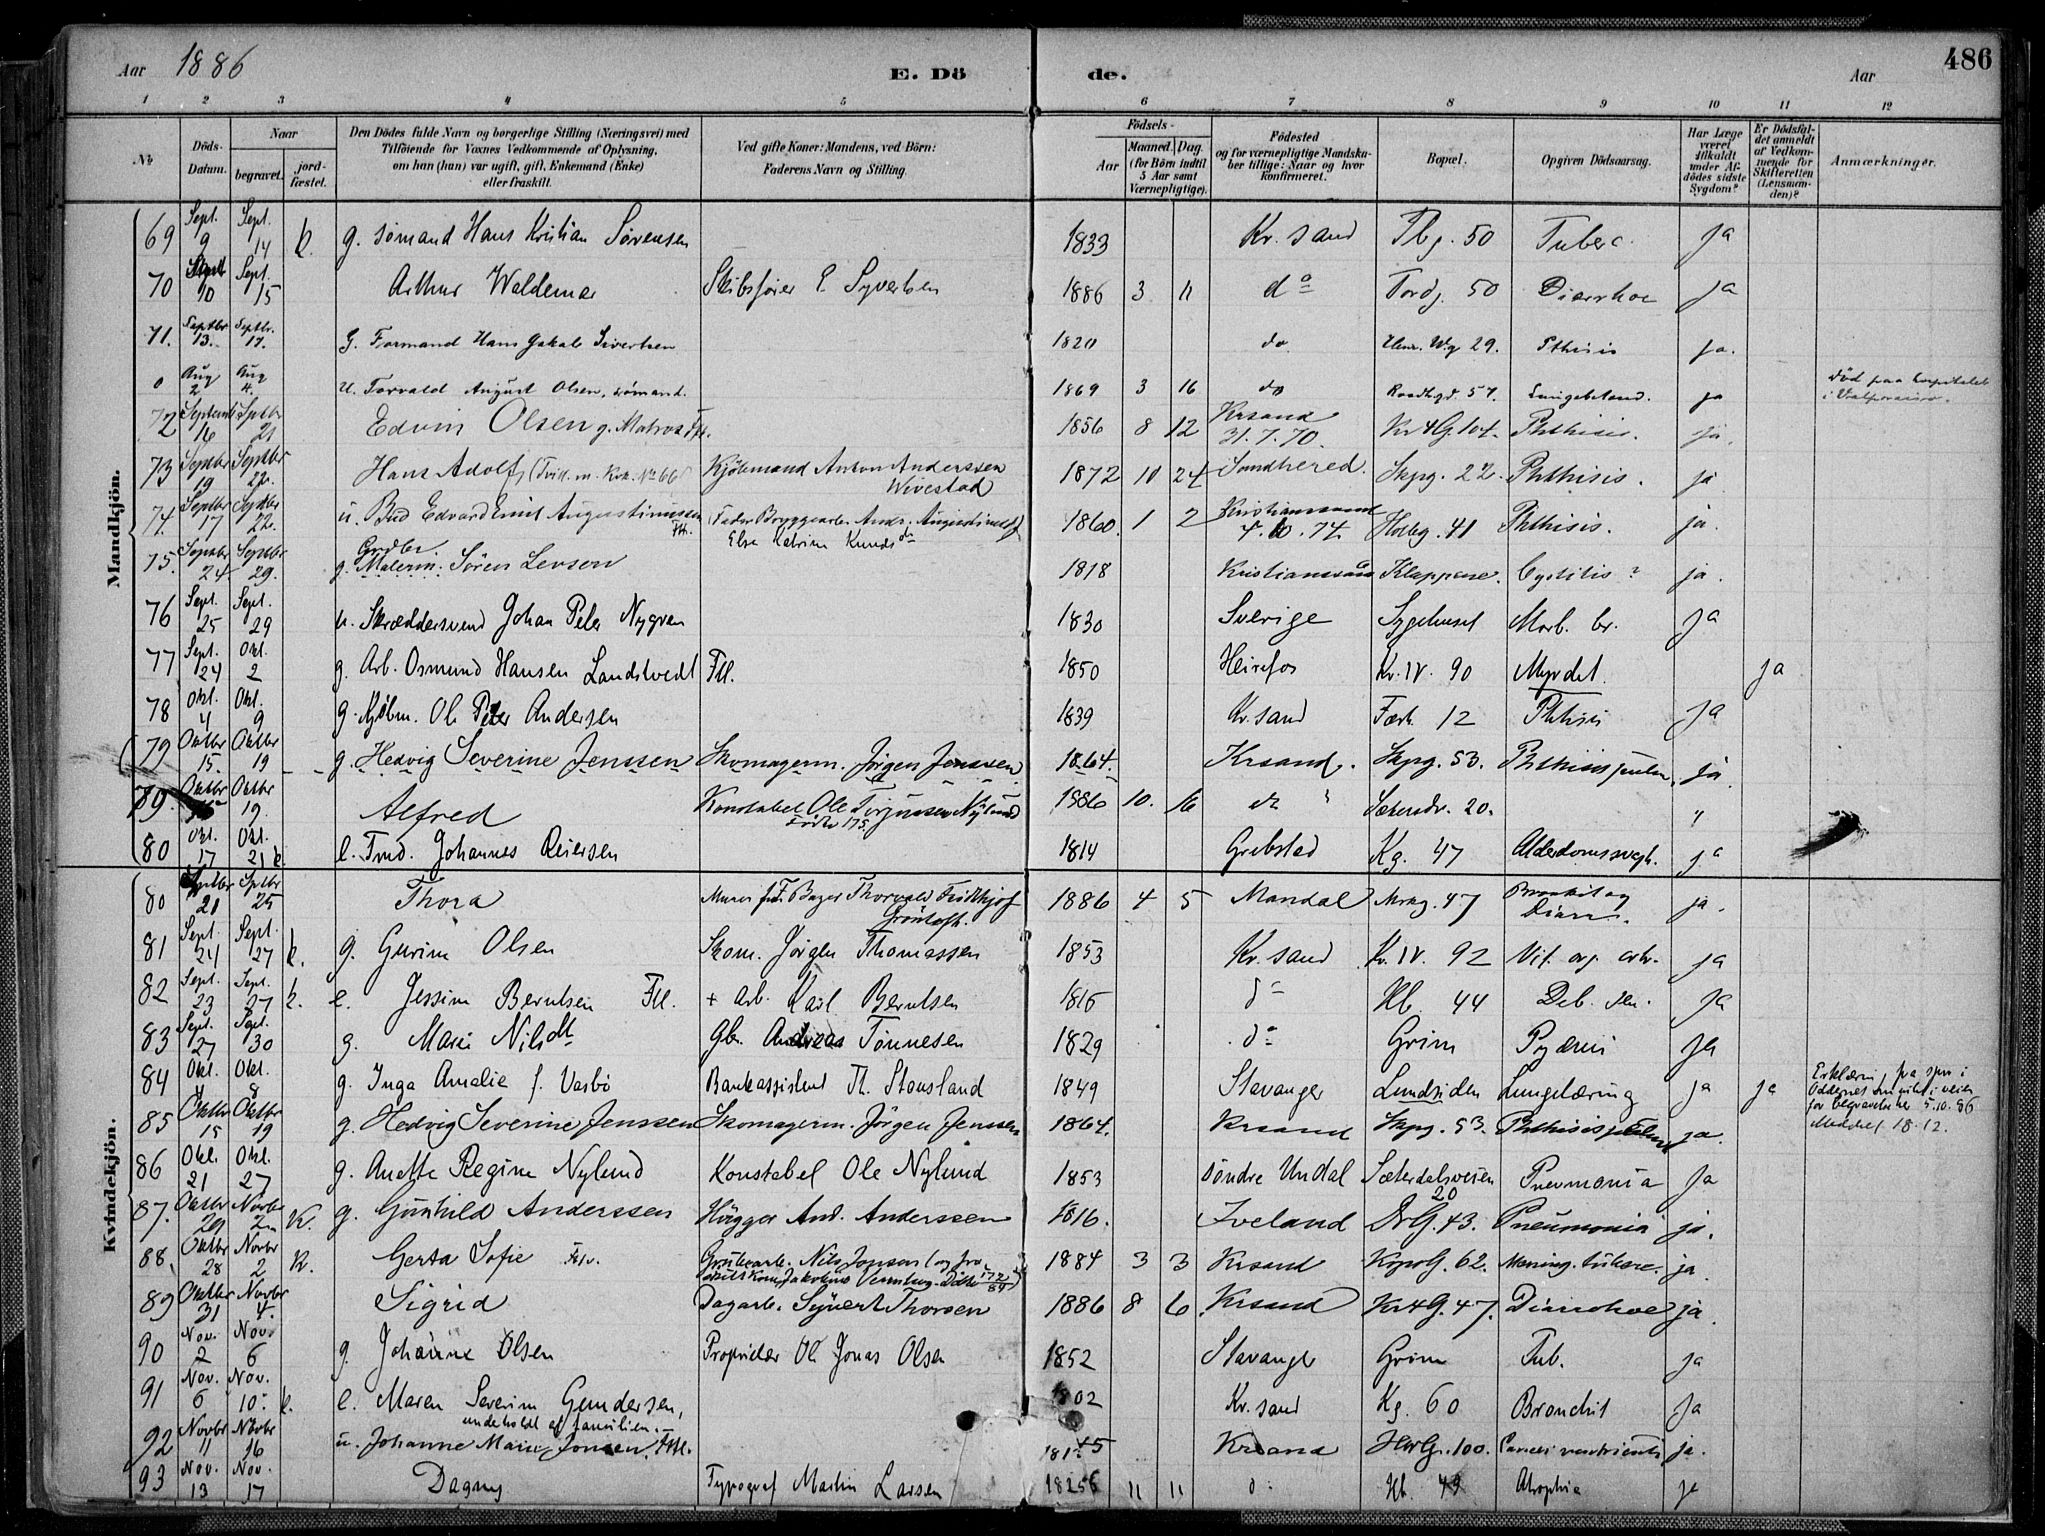 Aar 1886 E. Dö de. Aar 486
1 2 3 4 5 6 7 8 9 10 11 12
No Döds-Datum. Naar begravet. jord-fæstet. Den Dödes fulde Navn og borgerlige Stilling (Næringsvei) med Tilföiende for Voxnes Vedkommende af Oplysning, om han (hun) var ugift, gift, Enkemand (Enke) eller fraskilt. Ved gifte Koner: Mandens, ved Börn: Faderens Navn og Stilling. Födsels- Aar Maaned. Dag. (for Börn indtil 5 Aar samt Værnepligtige). Födested og for værnepligtige Mandskaber tillige: Naar og hvor Konfirmeret. Bopæl. Opgiven Dödsaarsag. Har Læge været tilkaldt under Afdödes sidste Sygdom? Er Dödsfaldet anmeldt af Vedkommende for Skifteretten (Lensmanden)? Anmærkninger.
Mandkjön.
69 Sept. 9 Sept. 14 k. g. sømand Hans Kristian Sørensen 1833 Kr.sand Tbg. 50 Tuberc. Ja
70 Sept 10 Sept. 15 Arthur Waldemar Skibsfører E. Syvertsen 1886 3 11 do Tordg. 50 Diarrhoe Ja
71. Septbr 13. Septbr. 17. G. Formand Hans Jakob Sivertsen 1820 do 29. Pthisis ja.
0 Aug 2 Aug 4. u. Torvald August Olsen, sømand. 1869 3 16 do Raadhgd. 57. Lungebetænd. ja Død paa hospitalet i Valparaiso.
72 Septemb 16 Sptbr 21 Edvin Olsen g. Matros Ftl. 1856 8 12 Krsand 31.7.70. Kr 4G. 104. Phthisis. ja.
73 Septbr 19 Septbr 22. Hans Adolf (Tvill. m. Kvk. No 66) Kjöbmand Anton Anderssen Wivestad 1872 10 24 Sandhered. Skpg. 22. Phthisis. ja
74. Septbr 17 Septbr 22. u. Bud Edvard Emil Augustinussen Fth. (Fader Bryggearb. Andr. Augustinus Else Katrine Knuds dr 1860. 1 2 Kristianssand 4.10.74. Holbg. 41 Phthisis. ja.
75. Septbr 24 Septbr 29. g. Grdbr. Malerm. Sören Larsen 1818 Kristianssand Klappene. Cystitis? ja.
76 Sept. 25 Sept. 29 u. Skræddersvend Johan Peter Nygren 1830 Sverige Sygehuset Morb. br. Ja
77 Sept. 24 Okt. 2 g. Arb. Osmund Hansen Landstvedt Ftl. 1850 Heirefos Kr. IV. 90 Myrdet. ja
78 Okt. 4 Okt. 9 g. Kjøbm. Ole Peter Andersen 1839 Kr.sand Færk. 12 Phthisis Ja
(79 Oktbr 15. Oktbr 19 g. Hedvig Severine Jenssen Skomagerm. Jörgen Jenssen 1864. Krsand. Skpg. 53. Phthisis pulm. ja
79. Oktbr 19. Alfred Konstabel Ole Torjussen Nylund Født 17 5 1886 10. 16 do Sæterdv. 20. "
80 Okt. 17 Okt. 21 k. e. Fmd. Johannes Reiersen 1814 Grebstad Kg. 47 Alderdomssvagh. ja
Kvindekjön.
80 Sptbr 21 Sptbr 25 Thora Murer f. F. Bager Thorvald Fridthjof Gröntoft. 1886 4 5 Mandal Mrag. 47 Bronkit og Diarr. ja.
81 Sept. 24 Sept. 27 k. g. Gurine Olsen Skom. Jörgen Thomassen 1853 Kr.sand Kr. IV. 92 Vit. org. cord. ja
82 Sept. 23 Sept. 27 k. e. Jessine Berntsen Ftl. + Arb. Karl Berntsen 1815 do Hb. 44 Deb. sen. Ja
83 Sept. 27 Sept. 30 g. Marie Nilsdtr Gbr. Andreas Tönnesen 1829 do Grim Pyæmi Ja
84 Okt. 4 Okt. 8 g. Inga Amalie f. Vasbö Bankassistent Th. Stousland 1849 Stavanger Lundsiden Lungetæring ja ja Erklæring fra spr i Oddernes om intet i veien for begravelse 5.10.86 Meddelt 18.12.
85 Oktbr 15 Oktbr 19 g. Hedvig Severine Jenssen Skomagerm. Jörgen Jenssen 1864. Krsand Skpg. 53. Phthisis pulm. ja.
86 Okt. 21 Okt. 27 g. Anette Regine Nylund Konstabel Ole Nylund 1853 söndre Undal Sæterdalsveien 20 Pneumonia Ja
87. Oktbr 29 Novbr 2 K. g. Gunhild Anderssen Hugger And. Anderssen 1816. Iveland DrG. 43. Pneumonia ja.
88. Oktbr 28 Novbr 2 K. Gerta Sofie Grubearb. Nils Jonson 1884 3 3 Krsand KopG. 62. Mening. tuberc. ja
89 Oktbr 31 Novbr 4. Sigrid Dagarb. Syvert Thorsen 1886 8 6 Krsand Kr 4G. 47. Diarrhoe ja.
90 Nov. 2 Nov. 6 g. Johanne Olsen Proprietær Ole Jonas Olsen 1852 Stavanger Grim Tub. ja
91 Nov. 6 Nov. 10. k. e. Maren Severine Gundersen, 1802 Kr.sand Kg. 60 Bronchit Ja
92 Novbr 11 Novbr 16 u. underholdt af familien. Johanne Marie Jonsen Ftl. 45 Krsand HbrG. 100. Cancer ventriculi ja.
93 Nov. 13 Nov. 17 Dagny Typograf Martin Larsen 11 11 do Hb. 49 Atrophia ja